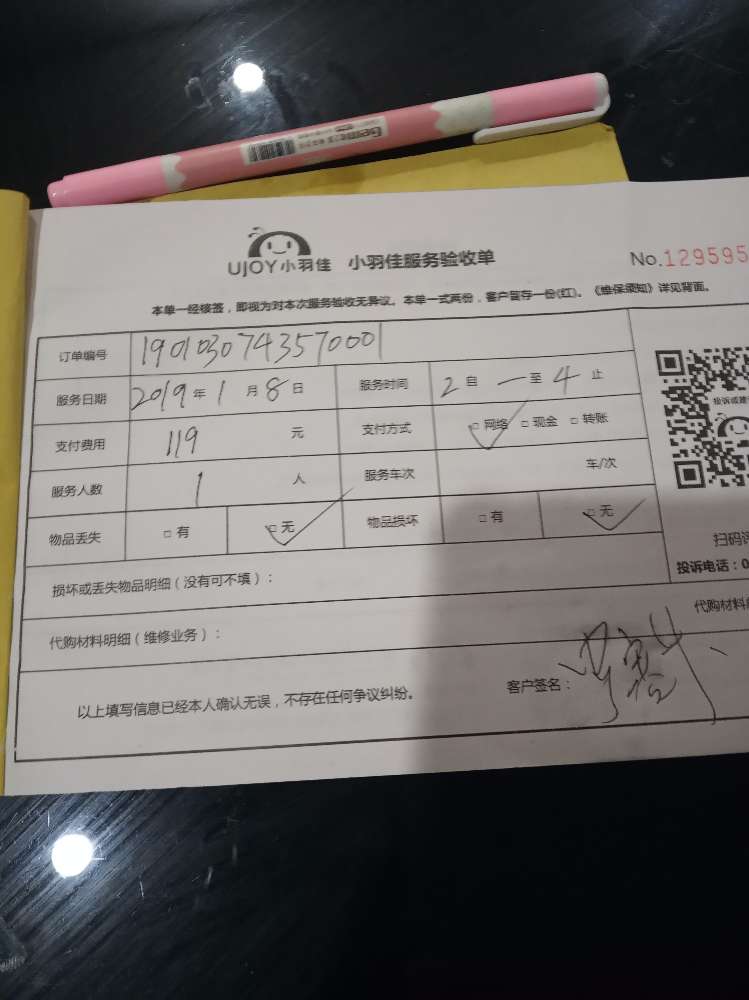 Gemi
UJOY小羽佳 小羽佳服务验收单 No.129595
本单一经核签，即视为对本次服务验收无异议。本单一式两份，客户暂存一份(红)。《维保须知》详见背面。
订单编号 1901030743570001
服务日期 2019年1月8日 服务时间 2自一至4止
支付费用 119元 支付方式 □网络 □现金 □转账
服务人数 1人 服务车次 车/次
物品丢失 □有 □无 物品损坏 □有 □无
投诉或建
扫码
投诉电话：0
损坏或丢失物品明细（没有可不填）：
代购材料明细（维修业务）： 代购材料
以上填写信息已经本人确认无误，不存在任何争议纠纷。 客户签名：